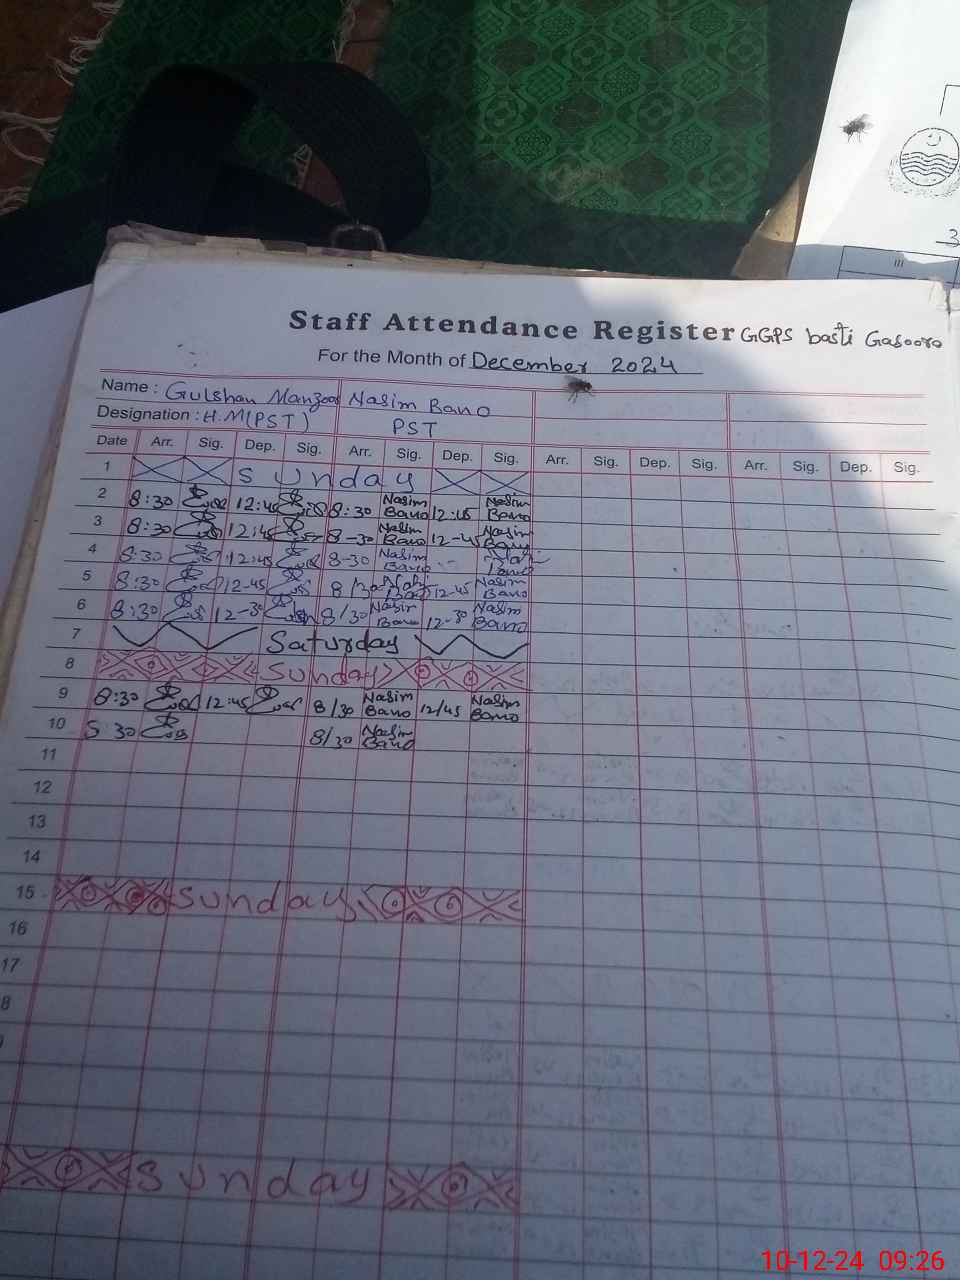 3
III
Staff Attendance Register GGPS basti Gasooro
For the Month of December 2024
Name : Gulshan Manzoor Nasim Bano
Designation : H.M(PST) PST
Date Arr. Sig. Dep. Sig. Arr. Sig. Dep. Sig. Arr. Sig. Dep. Sig. Arr. Sig. Dep. Sig.
1 Sunday
2 8:30 12:45 8:30 Nasim Bano 12:45 Nasim Bano
3 8:30 12:45 8-30 Nasim Bano 12-45 Nasim Bano
4 8:30 12:45 8-30 Nasim Bano
5 8:30 12-45 8/30 12-45 Nasim Bano
6 8:30 12-30 8/30 Nasim Bano 12-30 Nasim Bano
7 Saturday
8 Sunday
9 8:30 12:45 8/30 Nasim Bano 12/45 Nasim Bano
10 30 8/30 Nasim Bano
11
12
13
14
15 Sunday
16
17
8
Sunday
10-12-24 09:26